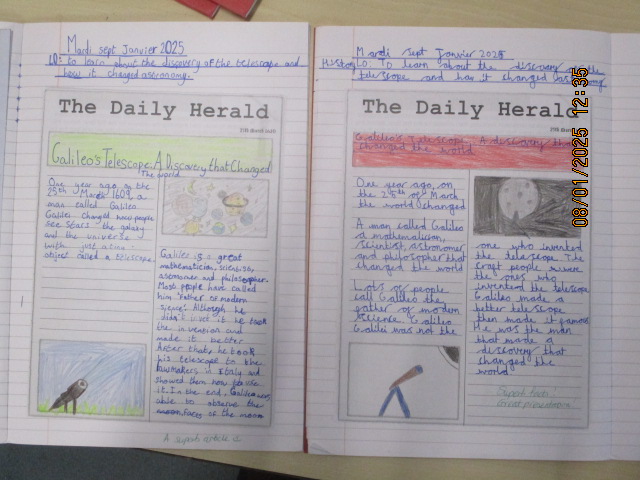 Mardi sept Janvier 2025
LO: to learn about the discovery of the telescope and
how it changed astronomy.
The Daily Herald
Galileo's Telescope: A Discovery that Changed
The world
One year ago, on the
25th March 1609, a
man called Galileo
Galilei changed how people
see stars the galaxy
and the universe
with just a tiny
object called a telescope.
Galileo is a great
mathematician, scientist,
astronomer and philosopher.
Most people have called
him 'father of modern
science'. Although he
didn't invent it he took
the invention and
made it better
After that, he took
his telescope to the
lawmakers in Italy and
showed them how to use
it. In the end, Galileo was
able to observe the
moon, faces of the moon
A superb article
Mardi sept Janvier 2025
History LO To learn about the discovery of the
telescope and how it changed astronomy
The Daily Herald
Galileo's Telescope: A discovery that
changed the world
One year ago, on
the 25th of March
the world changed
A man called Galileo
a mathematician,
scientist, astronomer
and philosopher that
changed the world
Lots of people
call Galileo the
father of modern
science. Galileo
Galilei was not the
one who invented
the telescope. The
craft people were
the ones who
invented the telescope
Galileo made a
better telescope
then made it famous
He was the man
that made a
discovery that
changed the
world.
Superb facts!
Great presentation
08/01/2025 12:35